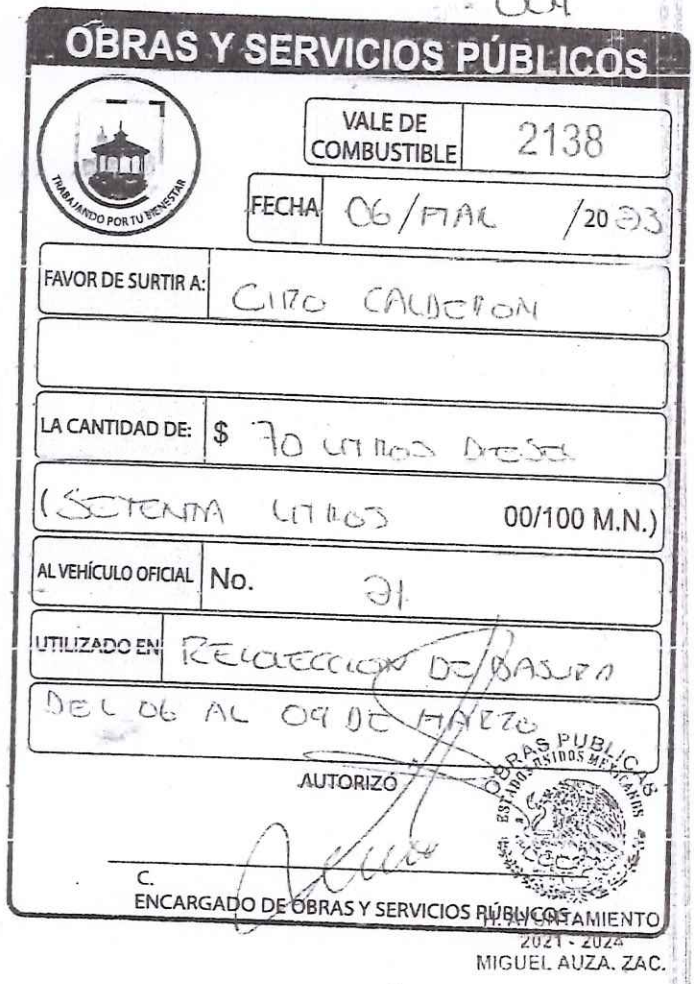 004
OBRAS Y SERVICIOS PÚBLICOS
TRABAJANDO POR TU BIENESTAR
VALE DE COMBUSTIBLE 2138
FECHA 06/MAR /2023
FAVOR DE SURTIR A: CIRO CALDERON
LA CANTIDAD DE: $ 70 LITROS DIESEL
(SETENTA LITROS 00/100 M.N.)
AL VEHÍCULO OFICIAL No. 21
UTILIZADO EN RECOLECCION DE BASURA
DEL 06 AL 09 DE MARZO
AUTORIZÓ
OBRAS PUBLICAS
ESTADOS UNIDOS MEXICANOS
C.
ENCARGADO DE OBRAS Y SERVICIOS PÚBLICOS
H. AYUNTAMIENTO
2021 - 2024
MIGUEL AUZA. ZAC.